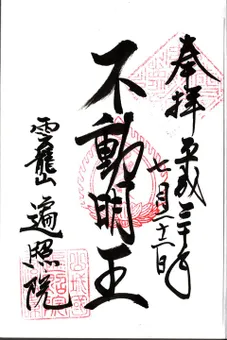 奉拝 平成三十年
七月二十二日
不動明王
雲龍山 遍照院